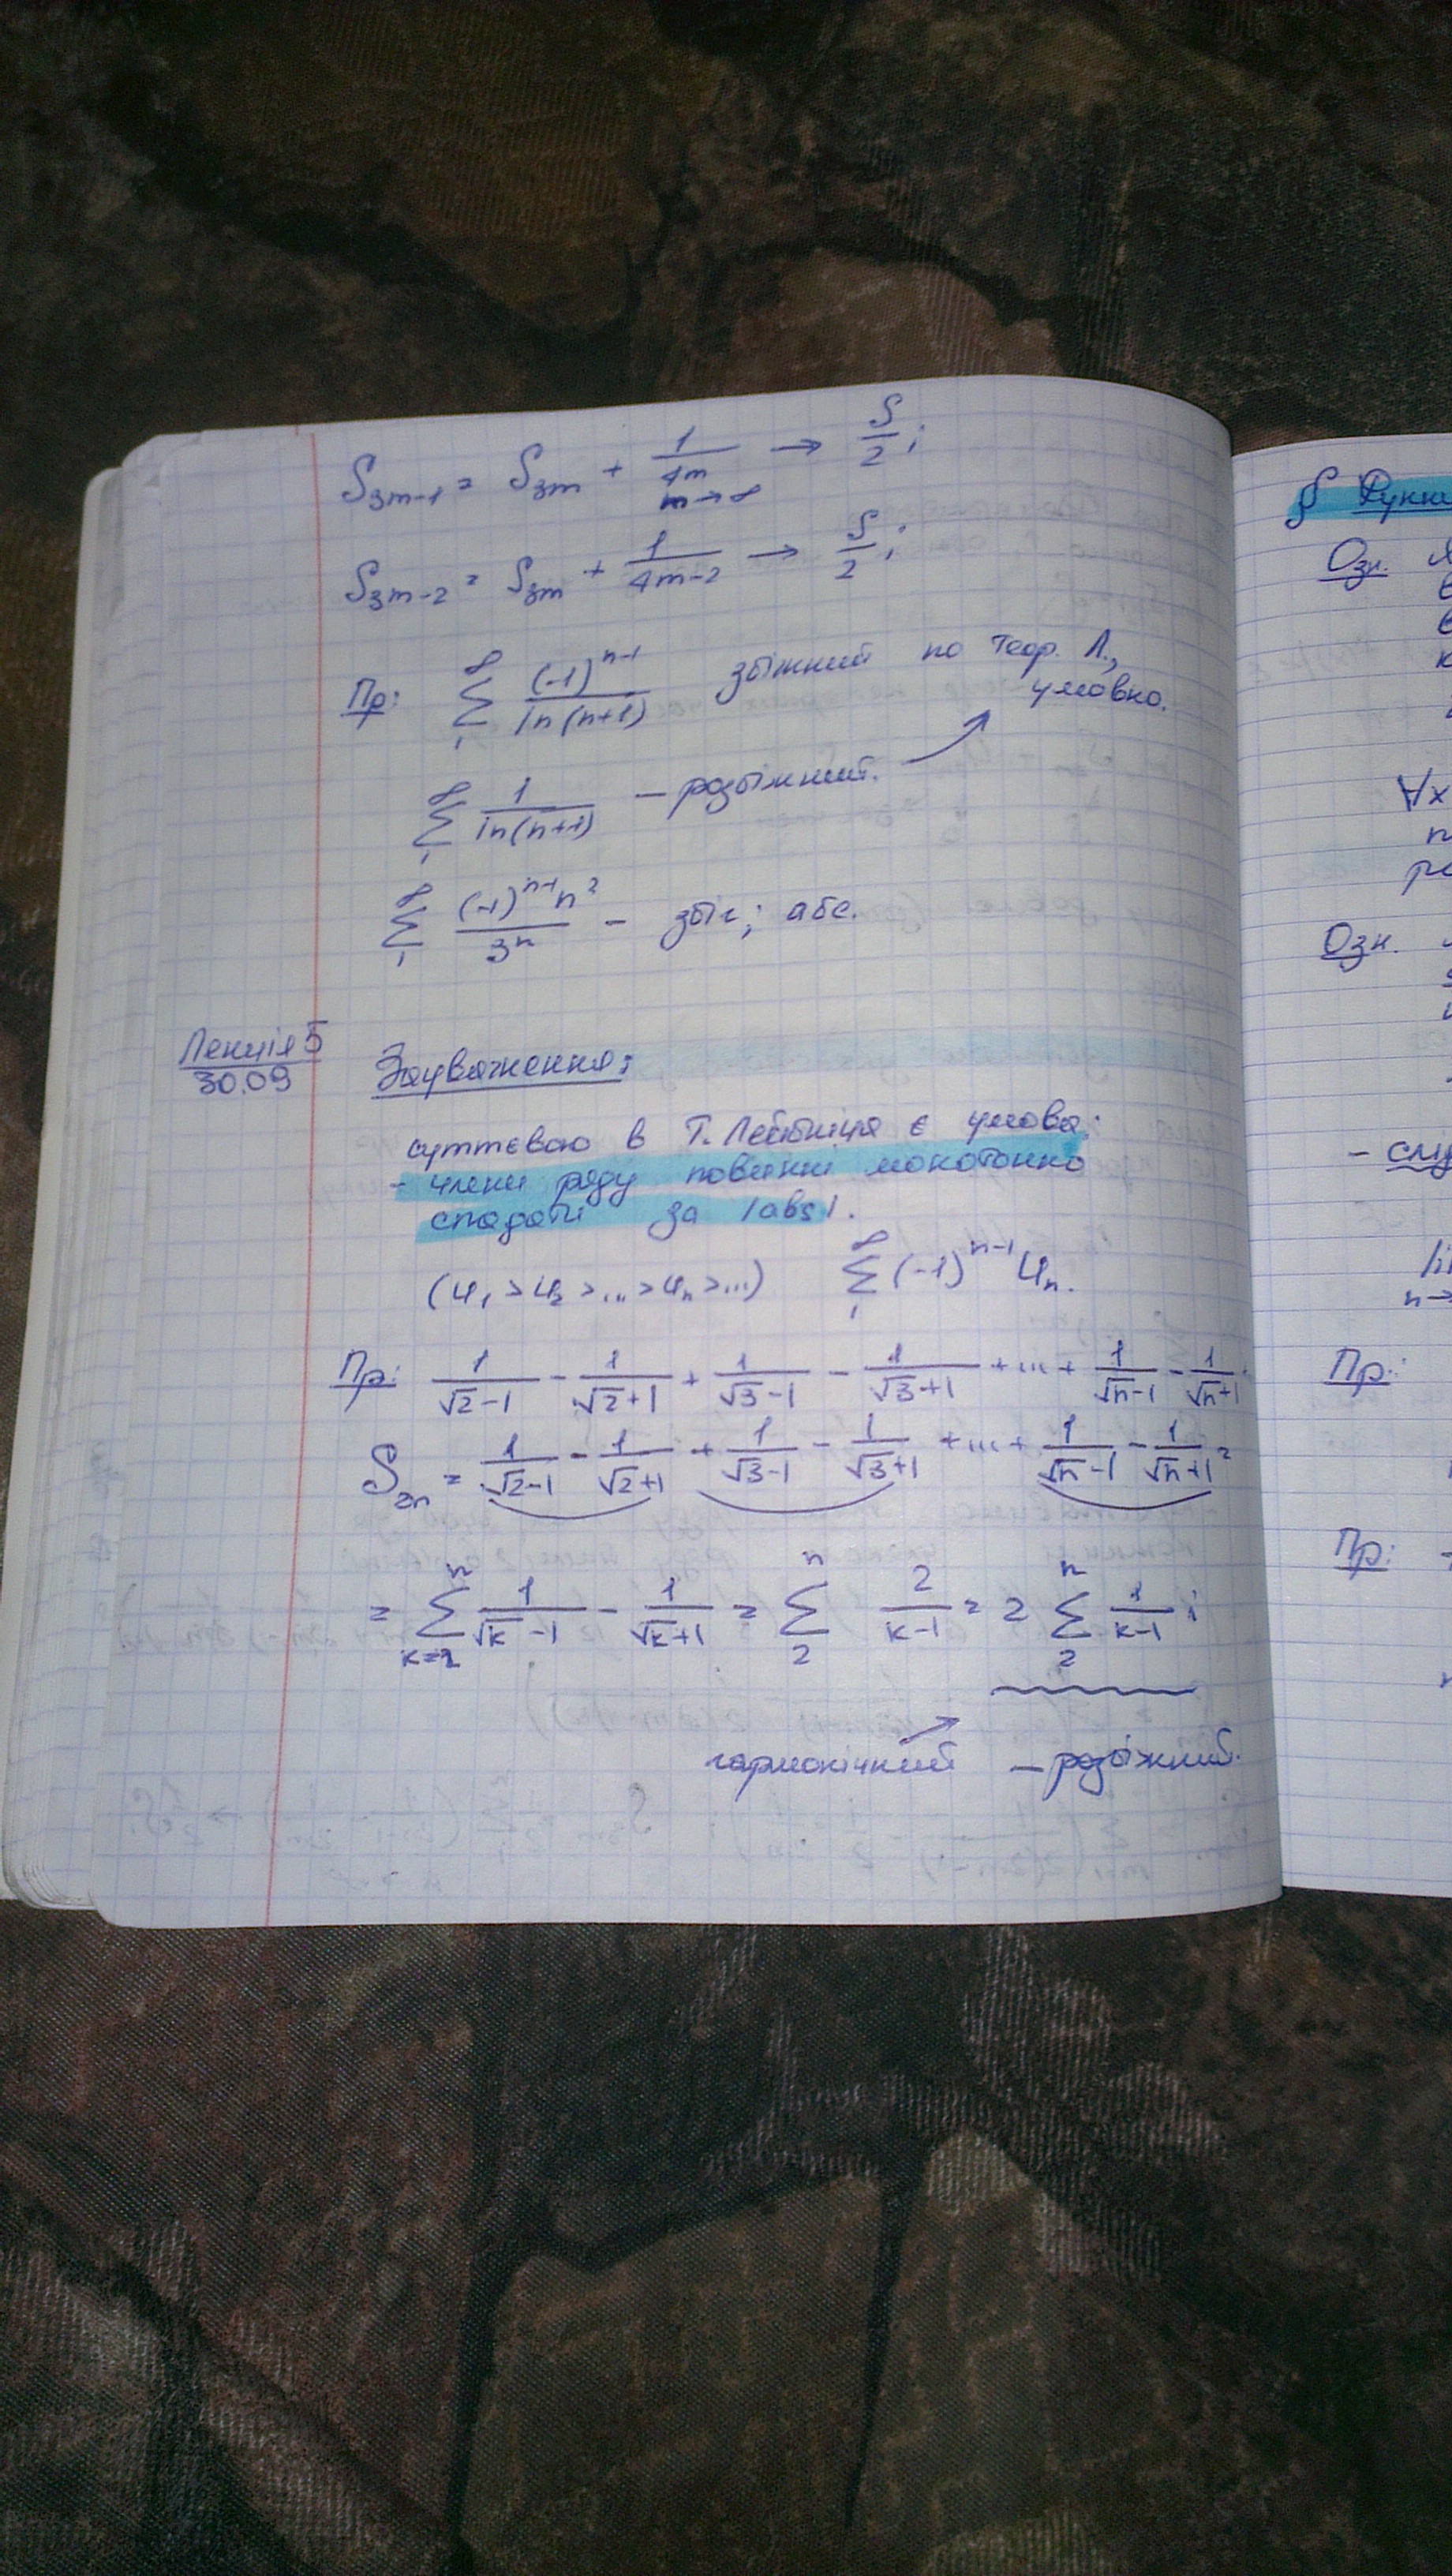 S₃ₘ₋₁ = S₃ₘ + 1/4m → S/2;
m→∞
S₃ₘ₋₂ = S₃ₘ + 1/(4m-2) → S/2;
Пр: ∞ ∑ 1 (-1)ⁿ⁻¹/ln(n+1) збіжний по теор. Л.,
умовно.
∞ ∑ 1 1/ln(n+1) – розбіжний.
∞ ∑ 1 (-1)ⁿ⁻¹n²/3ⁿ – збіг; абс.
Лекція 5
30.09
Зауваження:
суттєвою в Т. Лейбніця є умова:
- члени ряду повинні монотонно
спадати за |abs|.
(u₁ > u₂ > ... > uₙ > ...) ∞ ∑ 1 (-1)ⁿ⁻¹ uₙ.
Пр: 1/(√2-1) - 1/(√2+1) + 1/(√3-1) - 1/(√3+1) + ... + 1/(√n-1) - 1/(√n+1)
S₂ₙ = 1/(√2-1) - 1/(√2+1) + 1/(√3-1) - 1/(√3+1) + ... + 1/(√n-1) - 1/(√n+1) =
= n ∑ k=2 1/(√k-1) - 1/(√k+1) = n ∑ 2 2/(k-1) = 2 n ∑ 2 1/(k-1);
гармонічний – розбіжний.
§
Озн.
∀x
Озн.
n→
Пр:
Пр: